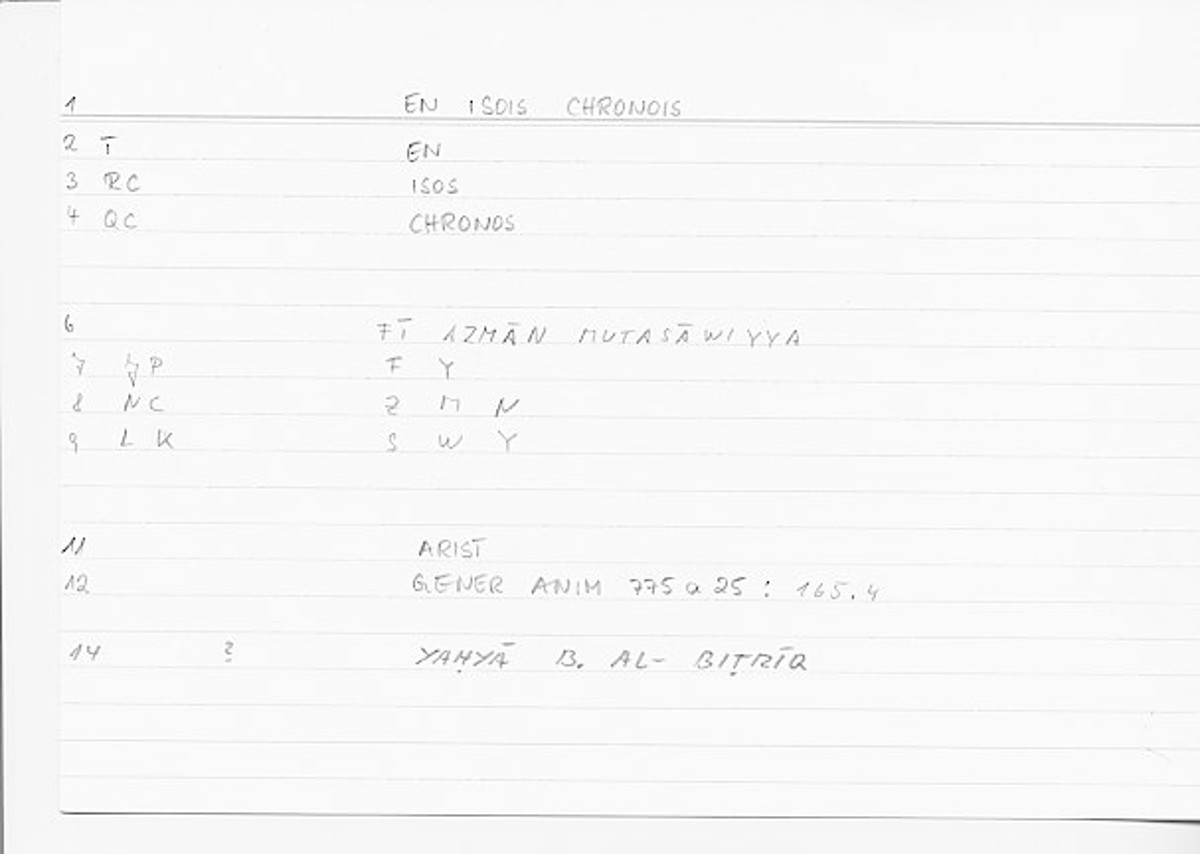 1 EN ISOIS CHRONOIS
2 T EN
3 RC ISOS
4 QC CHRONOS
6 FĪ AZMĀN MUTASĀWIYYA
7 P F Y
8 NC Z M N
9 LK S W Y
11 ARIST
12 GENER ANIM 775 a 25 : 165.4
14 ? YAḤYĀ B. AL- BIṬRĪQ